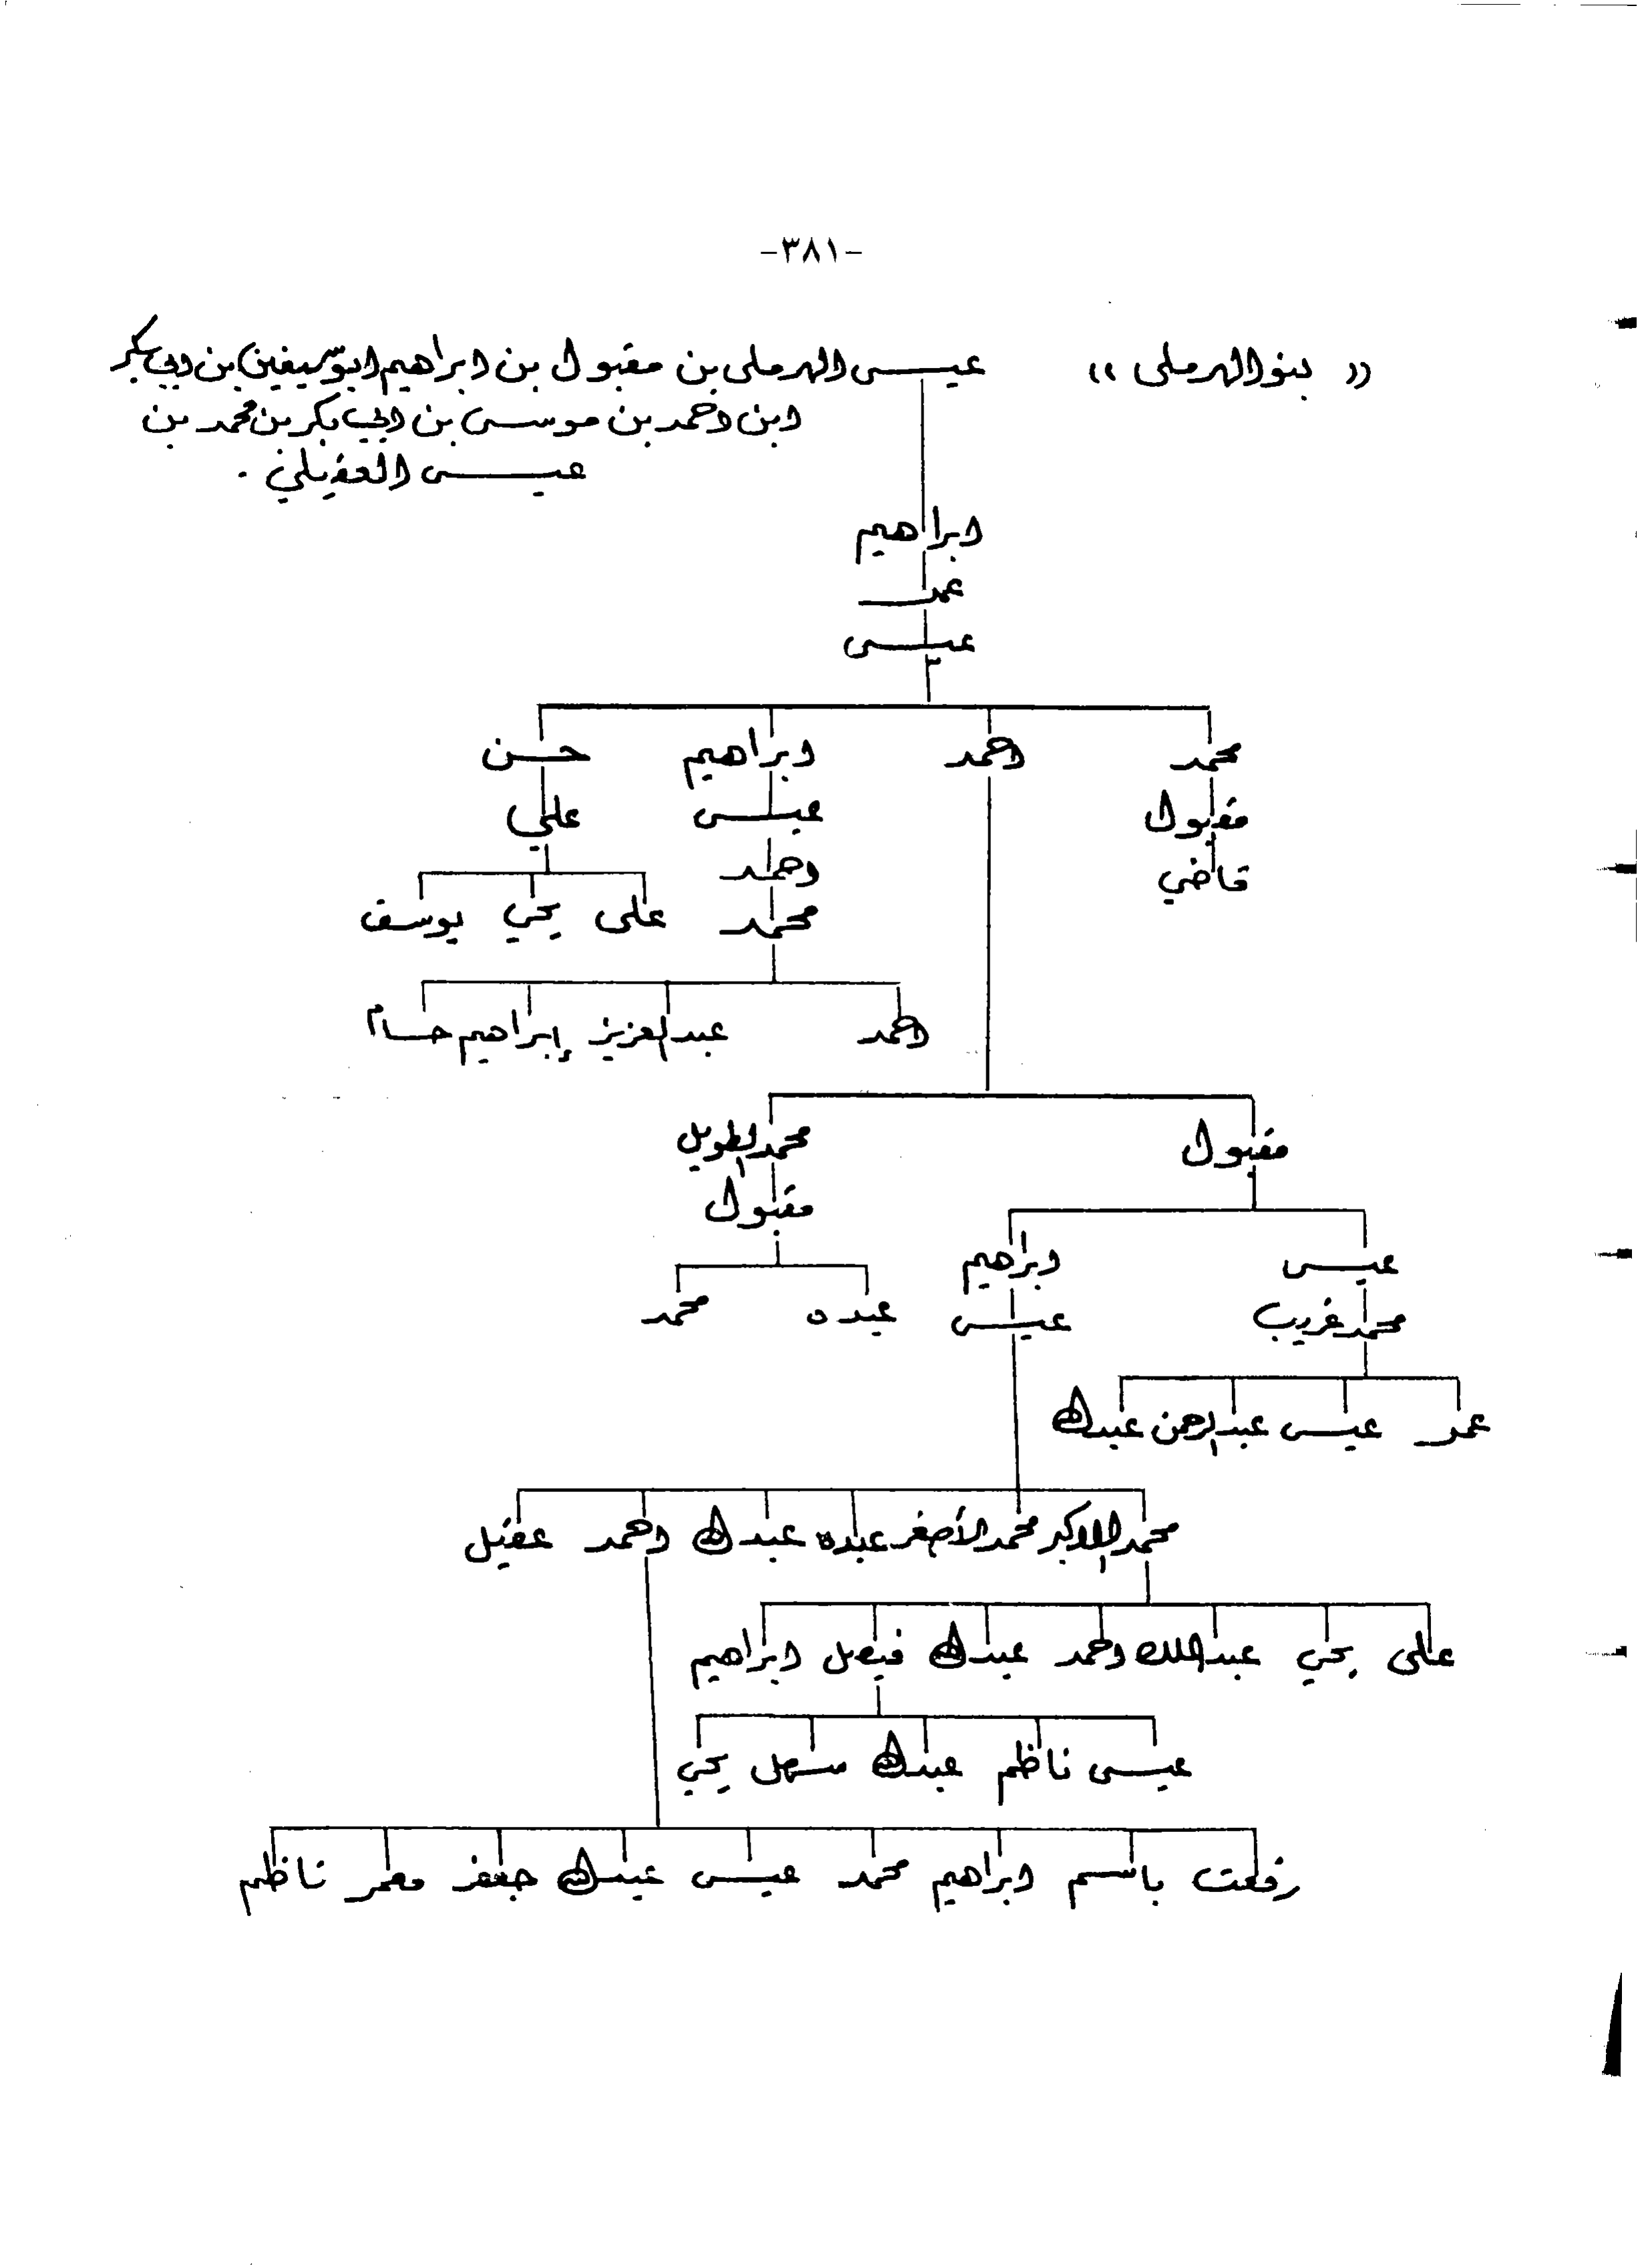 -٣٨١-
« بنو الهرملى » عيسى الهرملى بن مقبول بن ابراهيم ابو سيفين بن ابي بكر
ابن احمد بن موسى بن ابي بكر بن محمد بن
عيسى العقيلي .
ابراهيم
عمر
عيسى
محمد احمد ابراهيم حسن
مقبول عيسى علي
قاضي احمد
على يحي يوسف
محمد
احمد عبدالعزيز إبراهيم حسام
مقبول محمد الطويل
مقبول
عيسى ابراهيم
عبده محمد
محمد غريب عيسى
عمر عيسى عبدالرحمن عبدالله
محمد الاكبر محمد الأصغر عبده عبدالله احمد عقيل
على يحي عبدالملك احمد عبدالله فيصل ابراهيم
عيسى ناظم عبدالله سهل يحي
رفعت باسم ابراهيم محمد عيسى عبدالله جعفر معمر ناظم